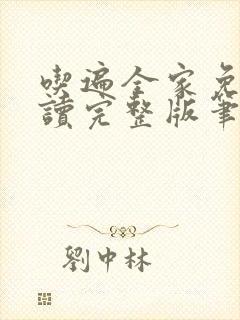 喫遍全家免
讀完整版筆
劉中林